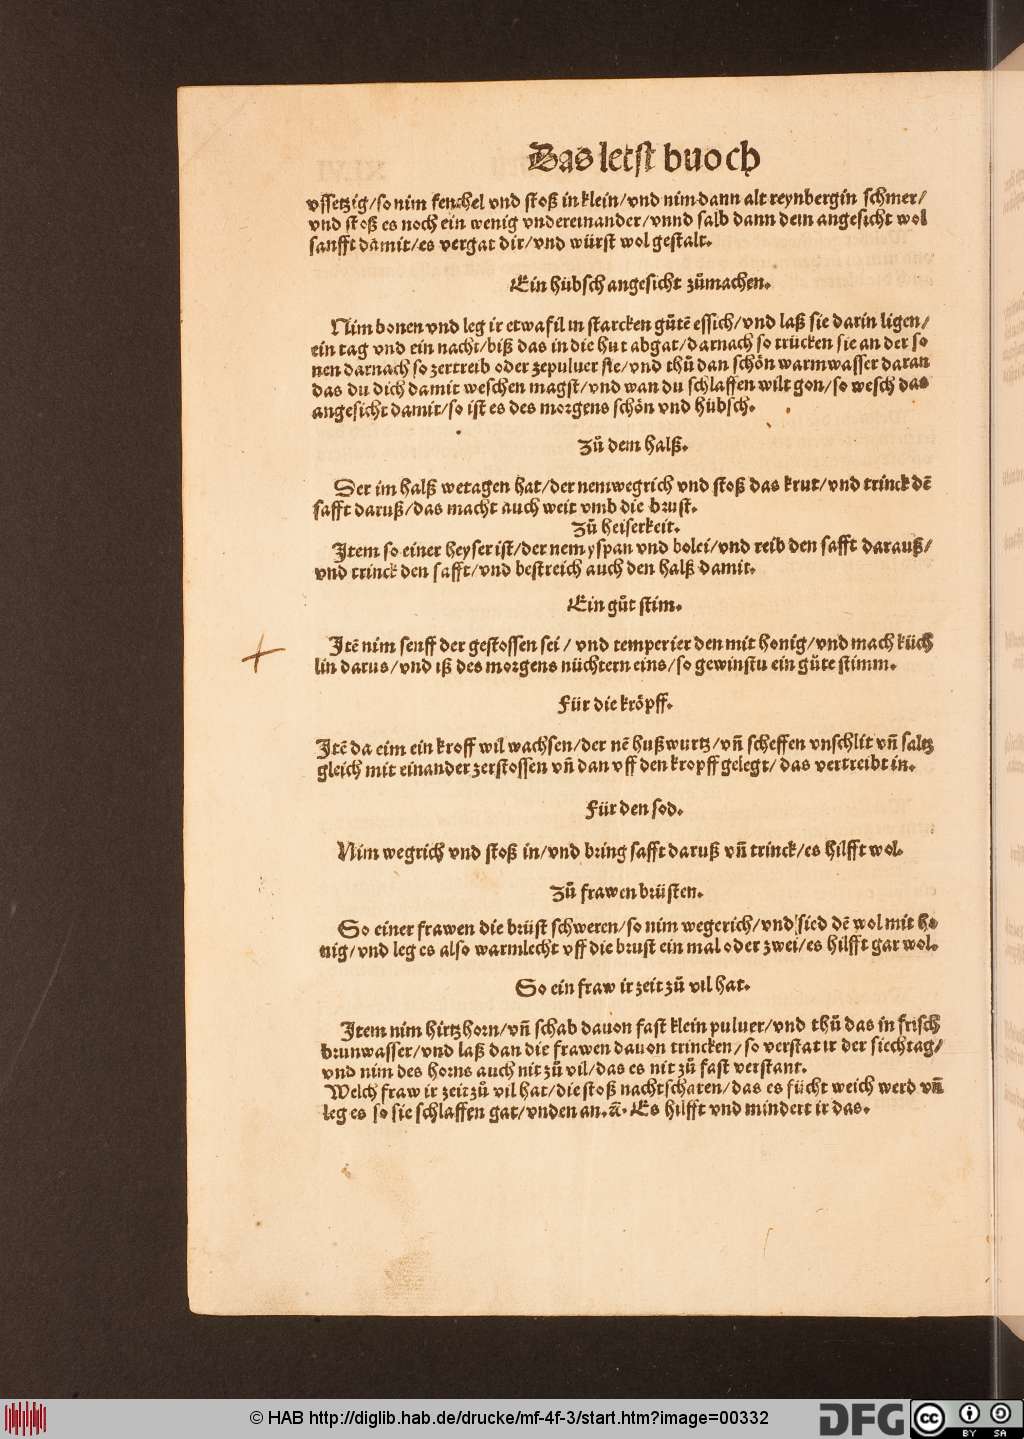 Das letst buoch
vssetzig/so nim fenchel vnd stoß in klein/vnd nim dann alt reynbergin schmer/
vnd stoß es noch ein wenig vndereinander/vnnd salb dann dein angesicht wol
sanfft damit/es vergat dir/vnd würst wol gestalt.
Ein hübsch angesicht zůmachen.
Nim bonen vnd leg ir etwa fil in starcken gůtē essich/vnd laß sie darin ligen/
ein tag vnd ein nacht/biß das in die hut abgat/darnach so trücken sie an der so
nen darnach so zertreib oder zepuluer sie/vnd thů dan schön warmwasser daran
das du dich damit weschen magst/vnd wan du schlaffen wilt gon/so wesch das
angesicht damit/so ist es des morgens schön vnd hübsch.
Zů dem halß.
Ser im halß wetagen hat/der nem wegrich vnd stoß das krut/vnd trinck dē
safft daruß/das macht auch weit vmb die brust.
Zů heiserkeit.
Item so einer heyser ist/der nem yspan vnd bolei/vnd reib den safft darauß/
vnd trinck den safft/vnd bestreich auch den halß damit.
Ein gůt stim.
Itē nim senff der gestossen sei / vnd temperier den mit honig/vnd mach küch
lin darus/vnd iß des morgens nüchtern eins/so gewinstu ein gůte stimm.
Für die kröpff.
Itē da eim ein kroff wil wachsen/der nē hußwurtz/vn̄ scheffen vnschlit vn̄ saltz
gleich mit einander zerstossen vn̄ dan vff den kropff gelegt/das vertreibt in.
Für den sod.
Nim wegrich vnd stoß in/vnd bring safft daruß vn̄ trinck/es hilfft wol.
Zů frawen brüsten.
So einer frawen die brüst schweren/so nim wegerich/vnd sied dē wol mit ho
nig/vnd leg es also warmlecht vff die brust ein mal oder zwei/es hilfft gar wol.
So ein fraw ir zeit zů vil hat.
Item nim hirtzhorn/vn̄ schab dauon fast klein puluer/vnd thů das in frisch
brunwasser/vnd laß dan die frawen dauon trincken/so verstat ir der siechtag/
vnd nim des horns auch nit zů vil/das es nit zů fast verstant.
Welch fraw ir zeit zů vil hat/die stoß nachtschaten/das es fücht weich werd vn̄
leg es so sie schlaffen gat/vnden an.ā. Es hilfft vnd mindert ir das.
© HAB http://diglib.hab.de/drucke/mf-4f-3/start.htm?image=00332
DFG
cc
BY SA